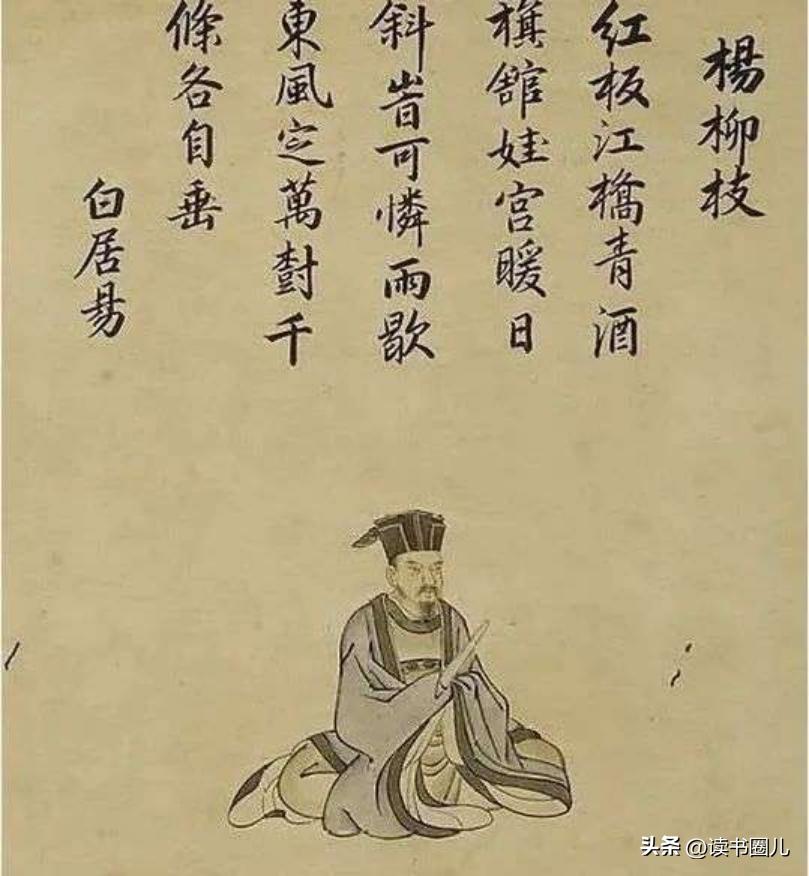 楊柳枝
红板江橋青酒
旗舘娃宫暖日
斜旹可憐雨歇
東風定萬樹千
條各自垂
白居易
头条 @读书圈儿